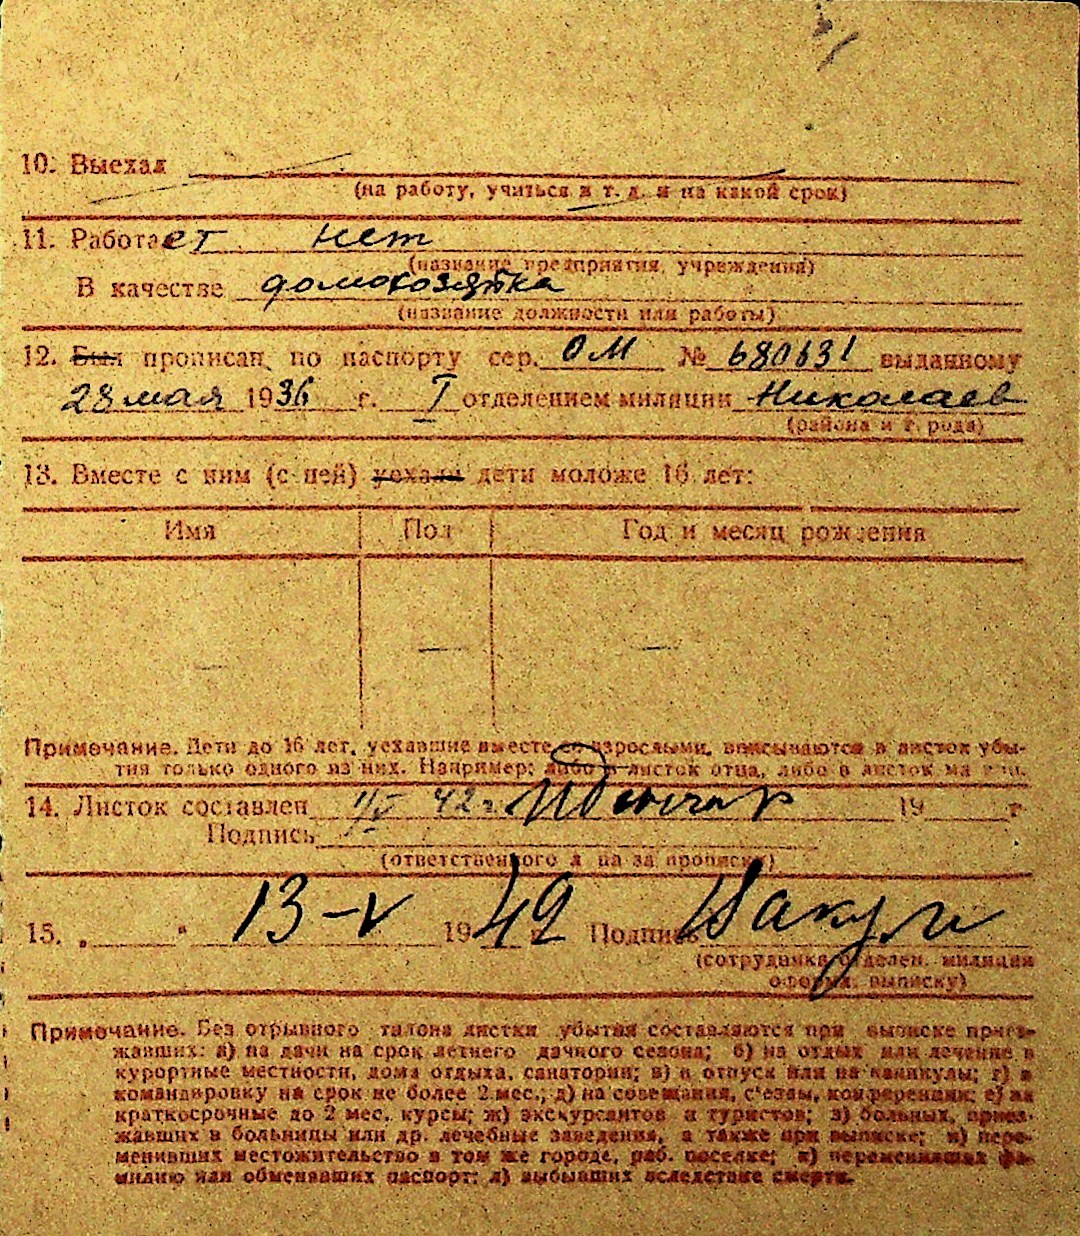 10. Выехал
(на работу, учиться и т. д. и на какой срок)
11. Работает нет
(название предприятия, учреждения)
В качестве домохозяйка
(название должности или работы)
12. Был прописан по паспорту сер. ОМ № 680631 выданному
28 мая 1936 г. I отделением милиции Николаев
(района и города)
13. Вместе с ним (с ней) уехали дети моложе 16 лет:
Имя Пол Год и месяц рождения
— — —
Примечание. Дети до 16 лет, уехавшие вместе со взрослыми, вписываются в листок убы-
тия только одного из них. Например: либо в листок отца, либо в листок матери.
14. Листок составлен 11/V 42 г. 19 г
Подпись
(ответственного лица за прописку)
15. „ " 13-V 1942 Подпись
(сотрудника отделен. милиции
оформ. выписку)
Примечание. Без отрывного талона листки убытия составляются при выписке приез-
жавших: а) на дачи на срок летнего дачного сезона; б) на отдых или лечение в
курортные местности, дома отдыха, санатории; в) в отпуск или на каникулы; г) в
командировку на срок не более 2 мес.; д) на совещания, съезды, конференции; е) на
краткосрочные до 2 мес. курсы; ж) экскурсантов и туристов; з) больных, приез-
жавших в больницы или др. лечебные заведения, а также при выписке; и) пере-
менивших местожительство в том же городе, раб. поселке; к) переменивших фа-
милию или обменявших паспорт; л) выбывших вследствие смерти.